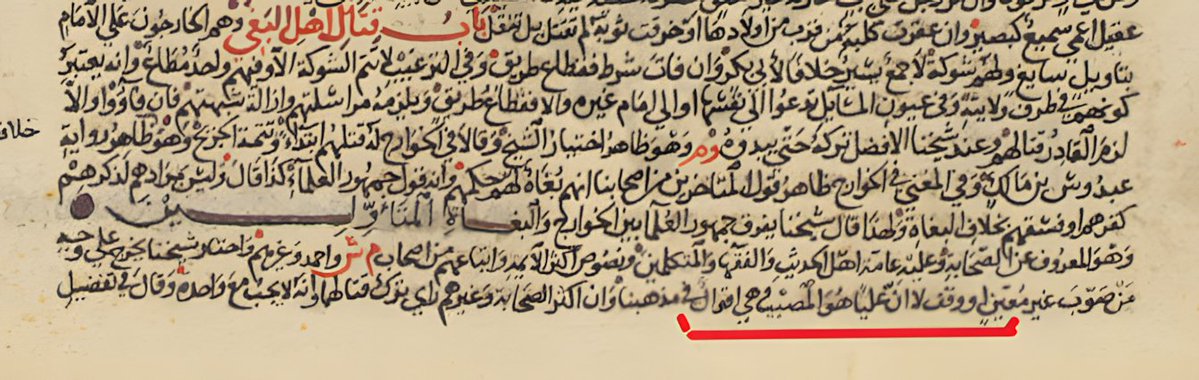 عقيل اعمى سميع كبصير وان عقرت كلبة من قرب من اولادها او خرقت ثوبه لم تقتل بل تنقل باب قتال اهل البغي وهم الخارجون على الامام
بتاويل سايغ ولهم شوكة لا جمع يسير خلافا لابي بكر وان فات شرط فقطاع طريق وفي الترغيب لا تتم الشوكة الا وفيهم واحد مطاع وانه يعتبر
كونهم في طرف ولايته وفي عيون المسايل تدعوا الى نفسها او الى امام غيره والا فقطاع طريق ويلزمه مراسلتهم وازالة شبهتهم فان فاؤوا والا
خلاف
لزم القادر قتالهم وعند شيخنا الافضل تركه حتى يبدوه وم وهو ظاهر اختيار الشيخ وقالا في الخوارج له قتلهم ابتداء وتتمة الجريح وهو ظاهر رواية
عبدوس بن مالك وفي المغني في الخوارج ظاهر قول المتاخرين من اصحابنا انهم بغاة لهم حكمهم وانه قول جمهور العلماء كذا قال وليس بمرادهم لذكرهم
كفرهم او فسقهم بخلاف البغاة ولهذا قال شيخنا يفرق جمهور العلما بين الخوارج والبغاة المتاولين
وهو المعروف عن الصحابة وعليه عامة اهل الحديث والفقها والمتكلمين ونصوص اكثر الايمة واتباعهم من اصحاب م ش واحمد وغيرهم واختار شيخنا يخرج على وجه
من صوب غير معين او وقف لا ان عليا هو المصيب هي اقوال في مذهبنا وان اكثر الصحابة وغيرهم راي بترك قتالهما وانه لا يجب مع واحدة وقال في تفضيل